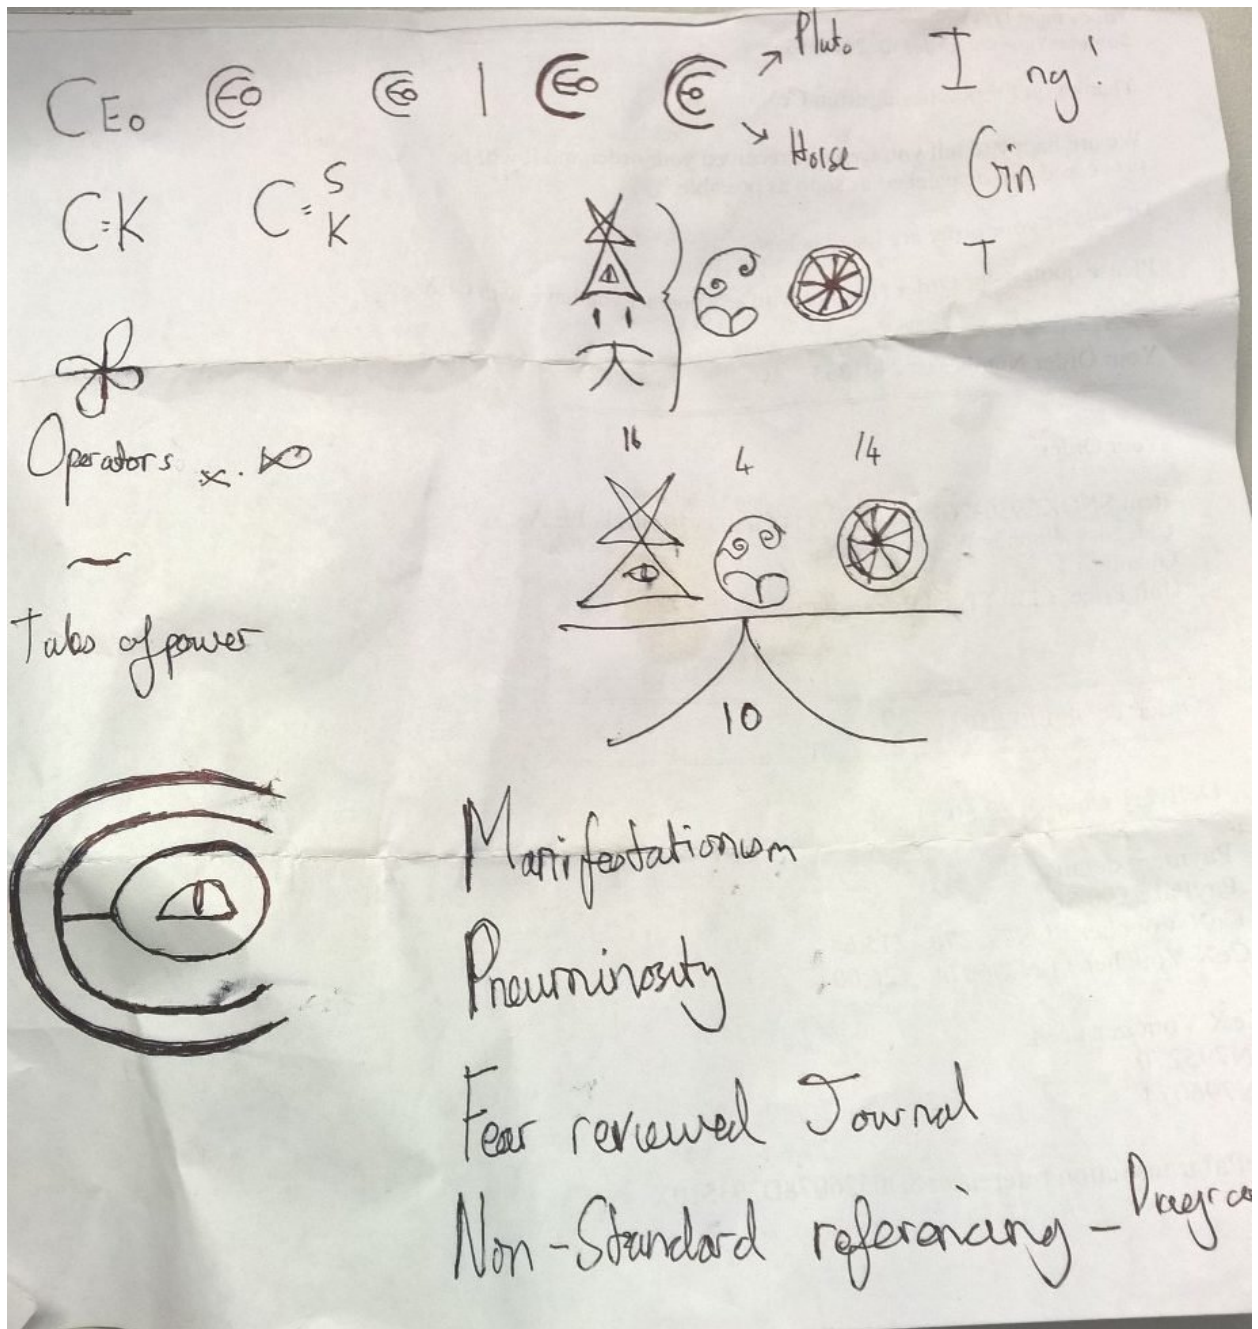 CEo CEo CEo | CEo CEo
Pluto
Horse
I ng!
Gin
T
C=K
C= S
K
Operators
16
4
14
10
Tubs of power
Manifestationism
Pneuminosity
Fear reviewed Journal
Non-Standard referencing -